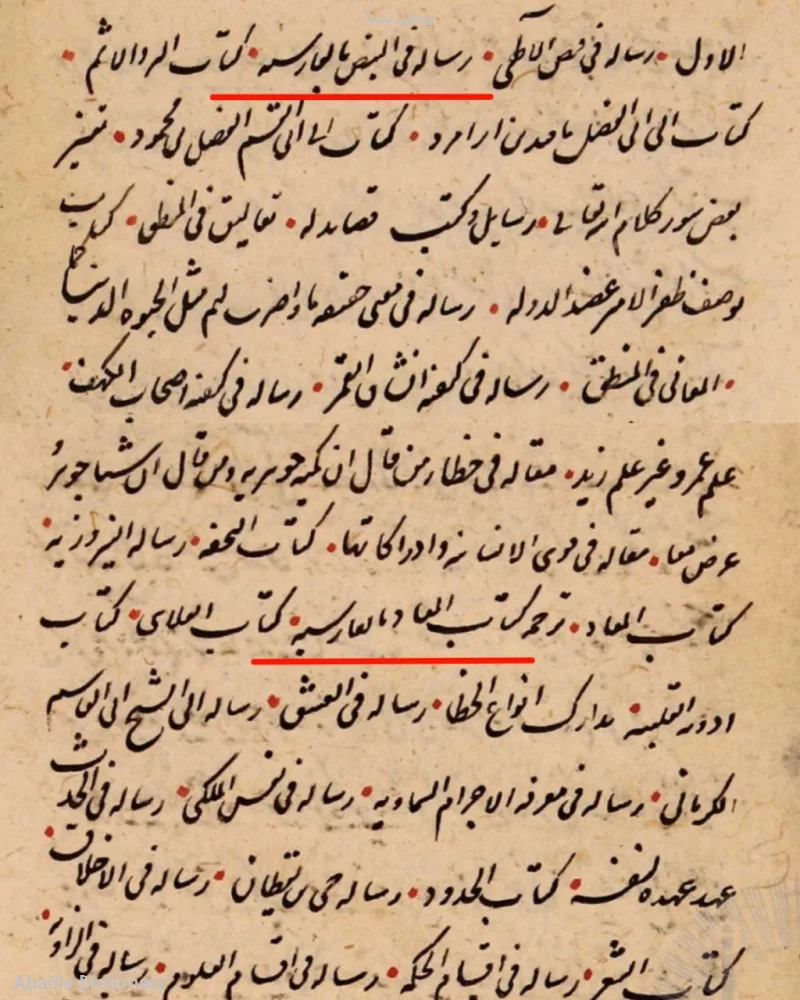 الاول • رساله فی فص الاطی • رساله فی النبض بالفارسیه • کتاب البر والاثم •
کتاب الی ابی الفضل • کتاب الی ابی القسم الفضل بن محمود • تفسیر
بعض سور کلام الله تعالی • رسایل و کتب قصاید له • تعالیق فی المنطق • کتاب
یوصف ظفر الامیر عضد الدوله • رساله فی معنی حقیقه واضرب لهم مثل الحیوه الدنیا کتاب
• المعانی فی المنطق • رساله فی کیفیه انشقاق القمر • رساله فی کیفیه اصحاب الکهف •
علم عمرو غیر علم زید • مقاله فی خطاء من قال ان کمیه جوهریه ومن قال ان شیئا جوهر
عرض معا • مقاله فی قوی الانسانیه وادراکاتها • کتاب التحفه • رساله النیروزیه •
کتاب المعاد • ترجمه کتاب المعاد بالفارسیه • کتاب العلای • کتاب
ادویه القلبیه • تدارک انواع الخطا • رساله فی العشق • رساله الی الشیخ ابی القاسم
الکرمانی • رساله فی معرفه الاجرام السماویه • رساله فی نفس الفلکی • رساله فی الحدث
عهد عهده لنفسه • کتاب الحدود • رساله حی بن یقظان • رساله فی الاخلاق •
کتاب الشعر • رساله فی اقسام الحکمه • رساله فی اقسام العلوم • رساله فی الزاویه •